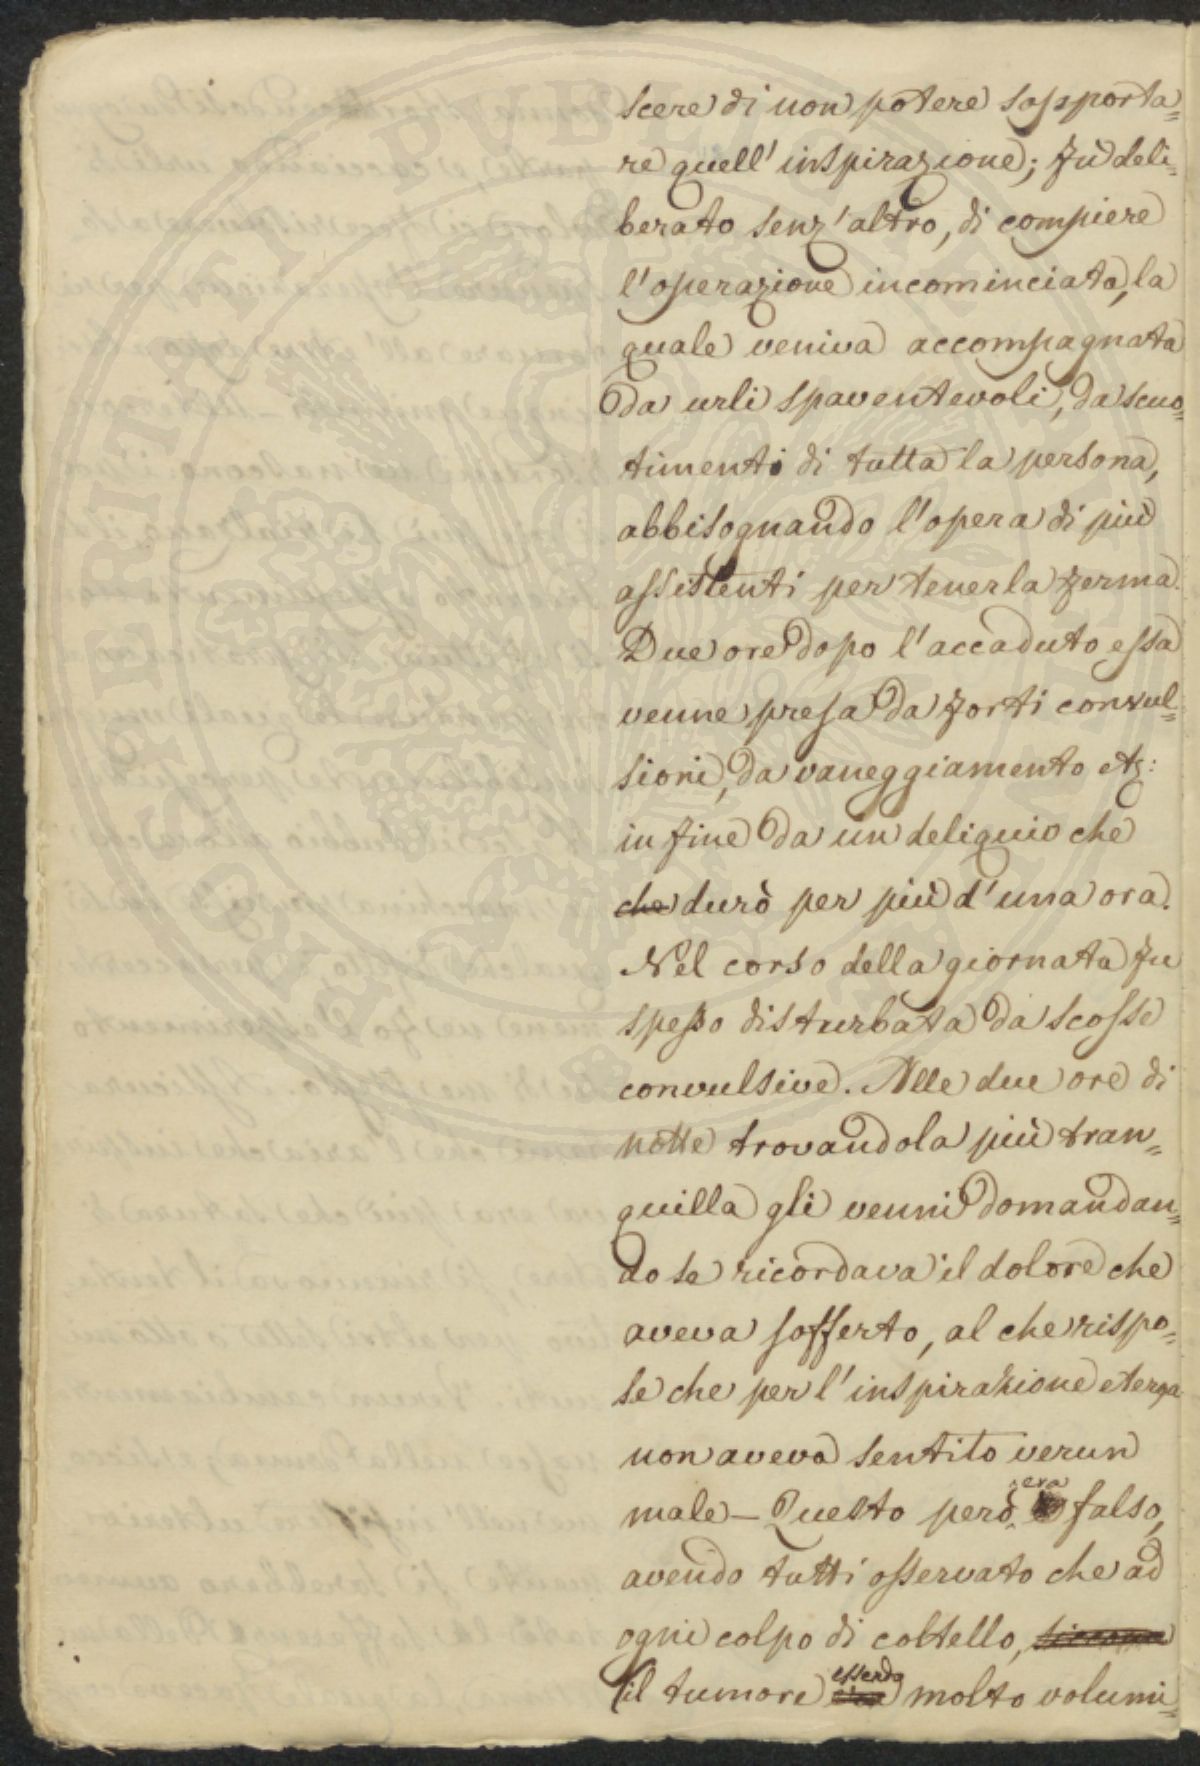 scere di non potere sopporta=
re quell' inspirazione; fù deli=
berato senz' altro, di compiere
l' operazione incominciata, la
quale veniva accompagnata
da urli spaventevoli, da scuo=
timenti di tutta la persona,
abbisognando l' opera di più
assistenti per tenerla ferma.
Due ore dopo l' accaduto essa
venne presa da forti convul=
sioni, da vaneggiamento etz:
in fine da un deliquio che
che durò per più d' una ora.
Nel corso della giornata fu
spesso disturbata da scosse
convulsive. Alle due ore di
notte trovandola più tran=
quilla gli venni domandan=
do se ricordava il dolore che
aveva sofferto, al che rispo=
se che per l' inspirazione eterea
non aveva sentito verun
male – Questo però era falso,
avendo tutti osservato che ad
ogni colpo di coltello, siccome
il tumore essendo molto volumi=
PROSPERITATI PUBLICAE